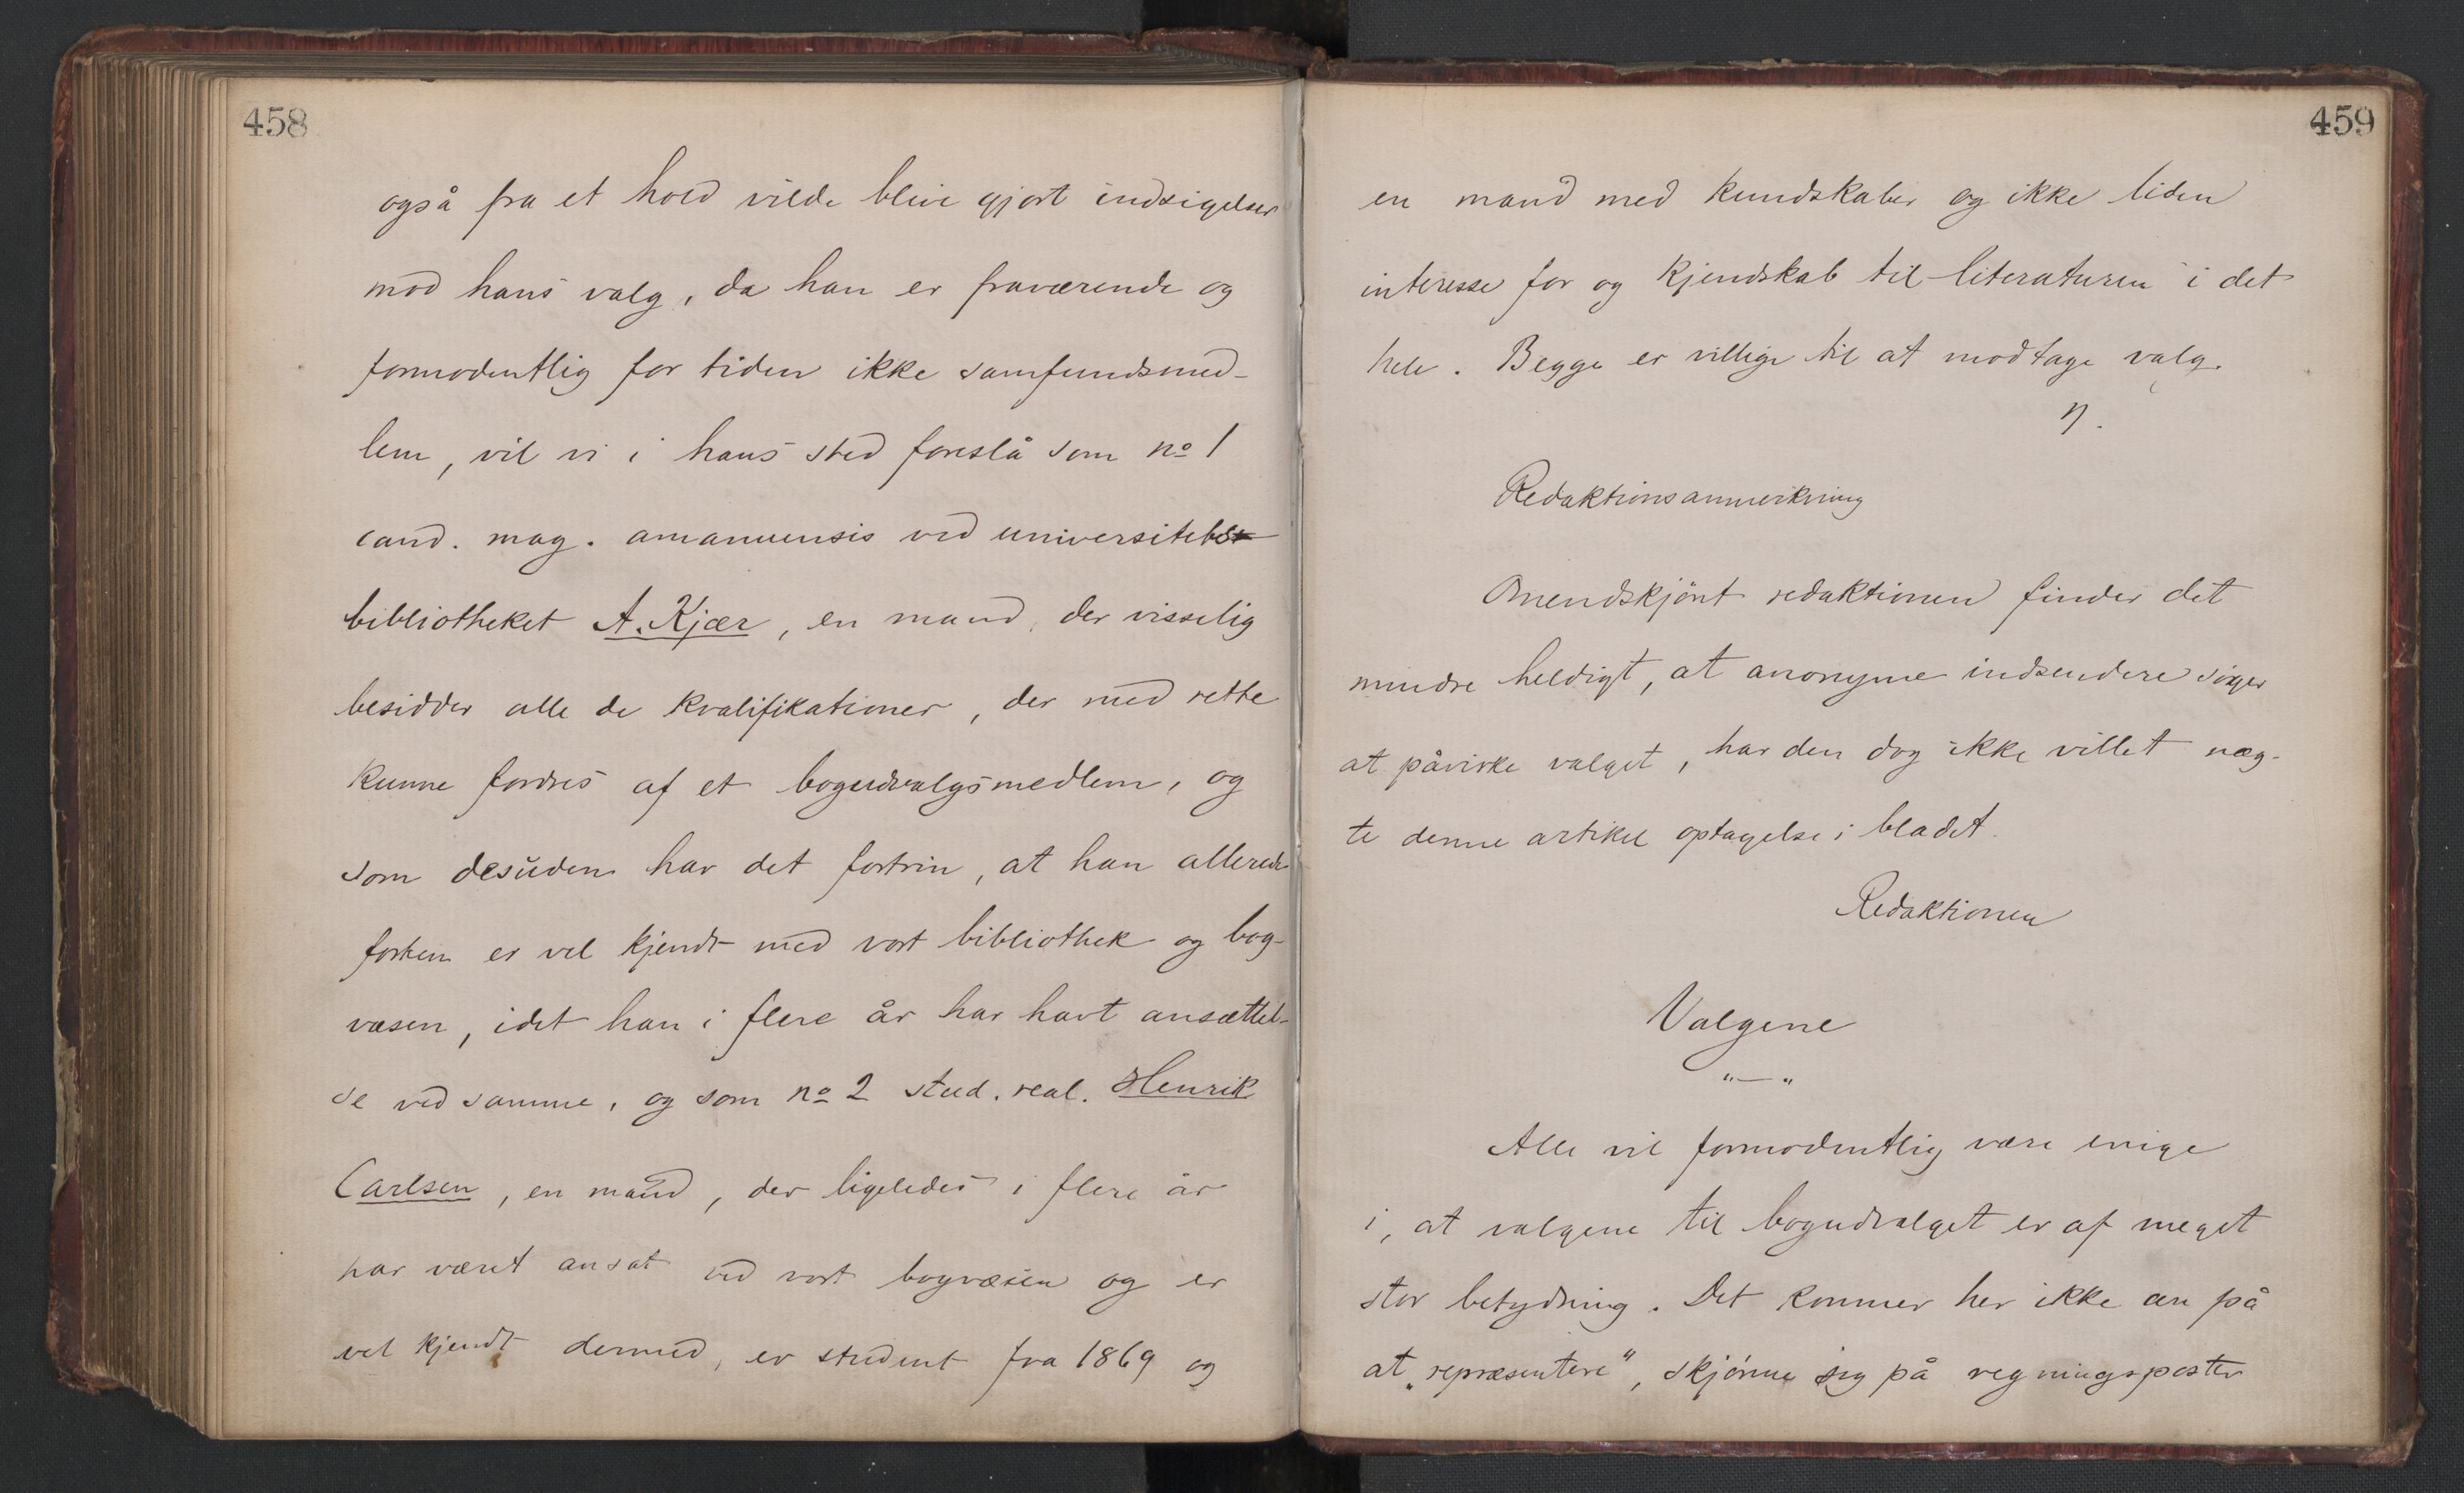 458
også fra et hold vilde blive gjort indsigelser
mod hans valg, da han er fraværende og
formodentlig for tiden ikke samfundsmed-
lem, vil vi i hans sted foreslå som no 1
cand. mag. amanuensis ved universitets
bibliotheket A. Kjær, en mand, der visselig
besidder alle de kvalifikationer, der med rette
kunne fordres af et bogudvalgsmedlem, og
som desuden har det fortrin, at han allerede
forhen er vel kjendt med vort bibliothek og bog-
væsen, idet han i flere år har havt ansættel-
se ved samme, og som no 2 stud. real. Henrik
Carlsen, en mand, der ligeledes i flere år
har været ansat ved vort bogvæsen og er
vel kjendt dermed, er student fra 1869 og
459
en mand med kundskaber og ikke liden
interesse for og kjendskab til literaturen i det
hele. Begge er villige til at modtage valg.
η.
Redaktionsanmerkning
Omendskjönt redaktionen finder det
mindre heldigt, at anonyme indsendere söger
at påvirke valget, har den dog ikke villet næg-
te denne artikel optagelse i bladet.
Redaktionen
Valgene
"—"
Alle vil formodentlig være enige
i, at valgene til bogudvalget er af meget
stor betydning. Det kommer her ikke an på
at „repræsentere“, skjönne sig på regningsposter